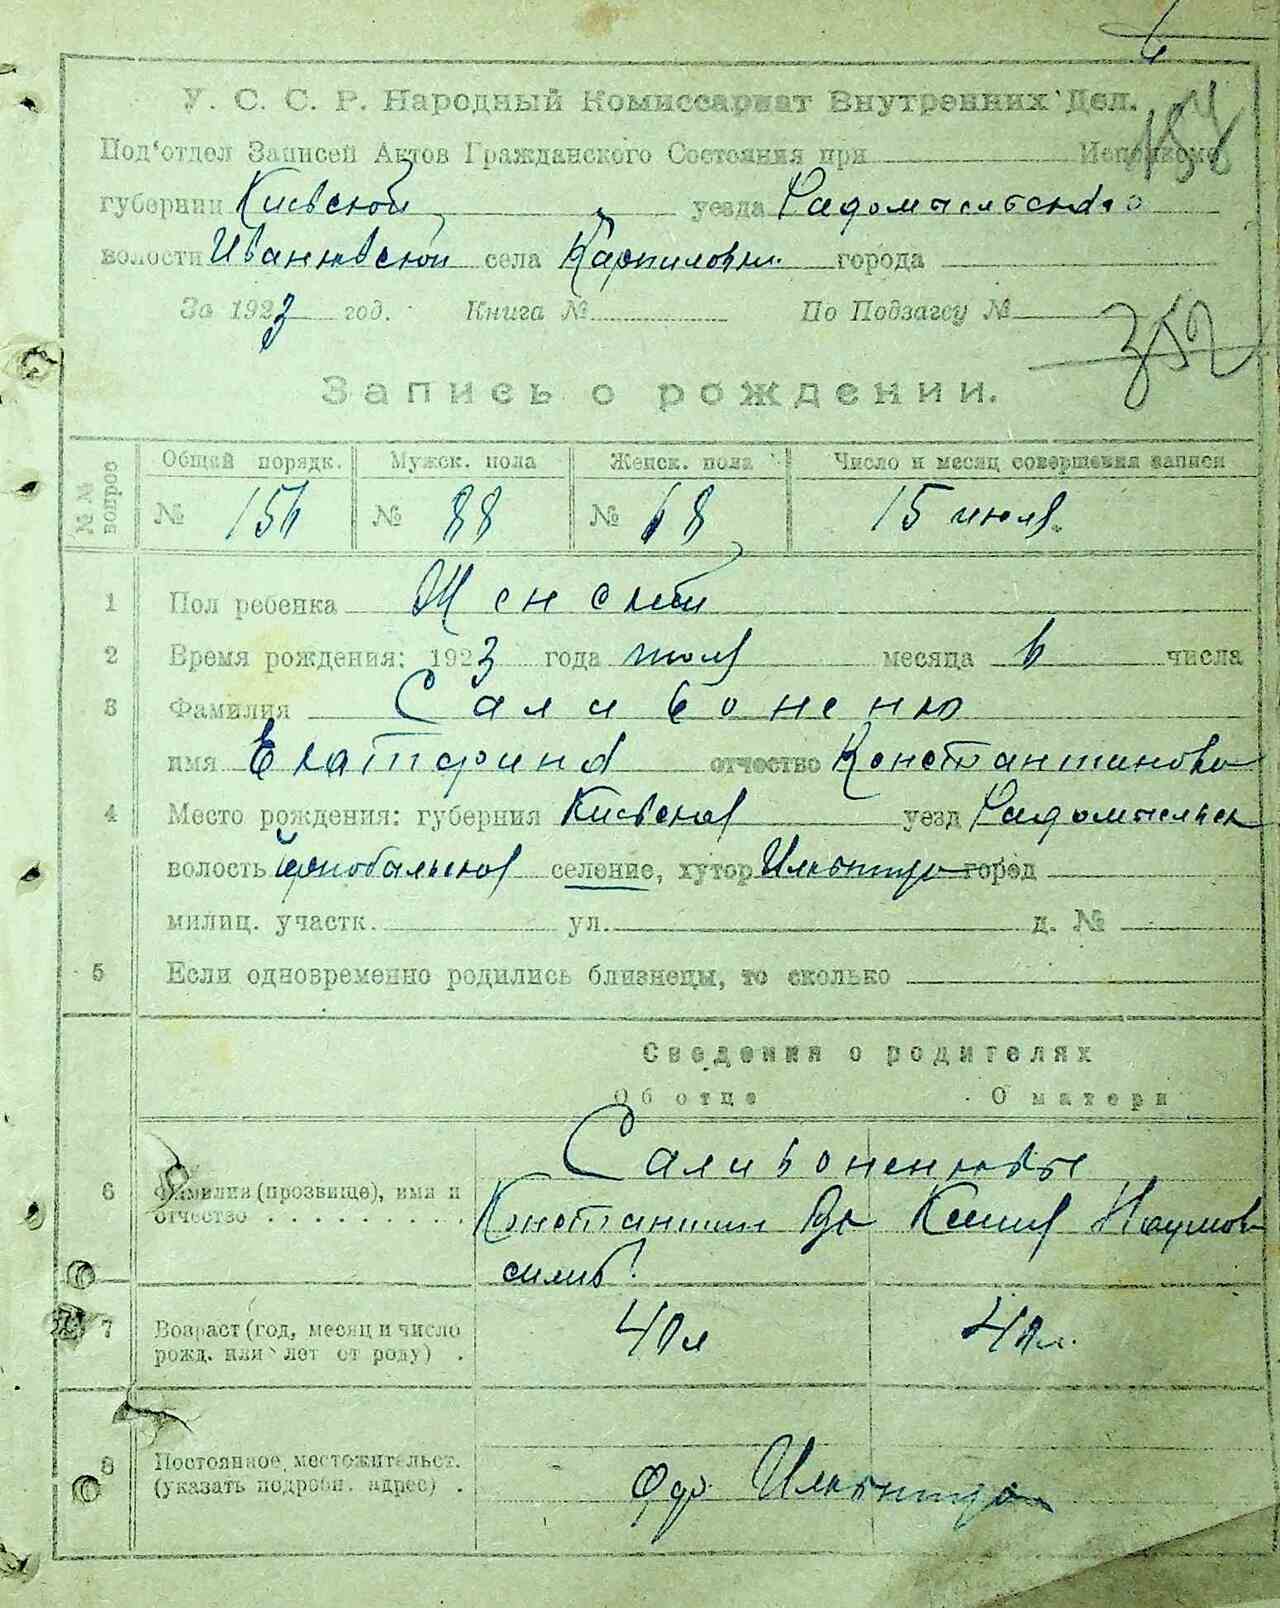 У. С. С. Р. Народный Комиссариат Внутренних Дел.
184
Под'отдел Записей Актов Гражданского Состояния при Исполкоме
губернии Киевской уезда Радомысльского
волости Иванковской села Карпиловки города
За 1923 год. Книга № По Подзагсу №
352
Запись о рождении.
№ № вопрос Общий порядк. Мужск. пола Женск. пола Число и месяц совершения записи
№ 156 № 88 № 68 15 июля
1 Пол ребенка Женский
2 Время рождения: 1923 года июля месяца 6 числа
3 Фамилия Саливоненко
имя Екатерина отчество Константинова
4 Место рождения: губерния Киевская уезд Радомысльск
волость Чернобыльской селение, хутор Ильинцы город
милиц. участк. ул. д. №
5 Если одновременно родились близнецы, то сколько
Сведения о родителях
Об отце О матери
Саливоненковы
6 Фамилия (прозвище), имя и
отчество . . . . . . . . . . Константин Ва Ксения Наумов
силиев.
7 Возраст (год, месяц и число
рожд. или лет от роду) . 40 л 40 л.
8 Постоянное местожительст.
(указать подробн. адрес) . Ильинцы